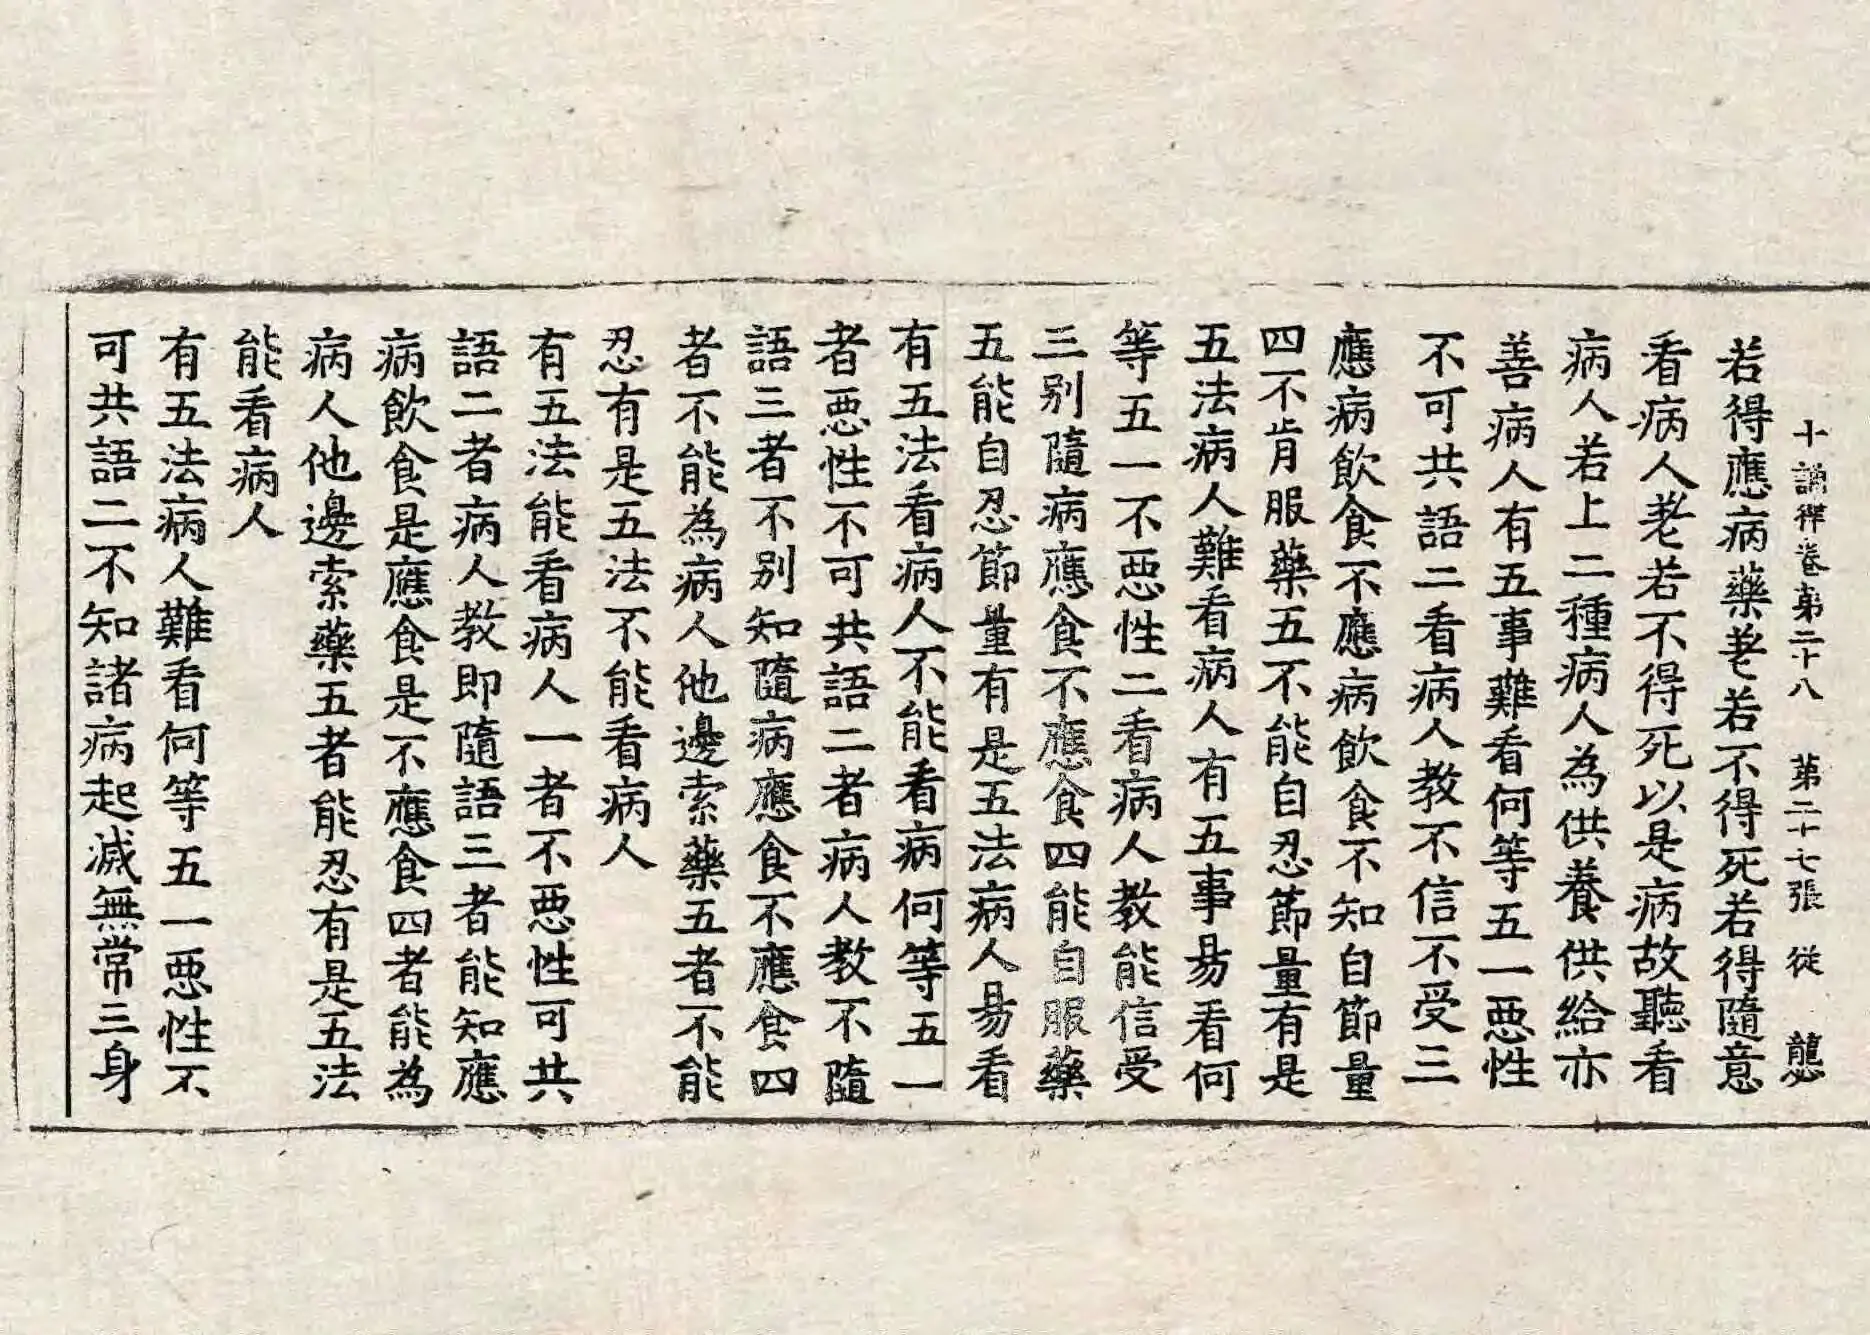 十誦律卷第二十八　第二十七張　從　龔
若得應病藥老若不得死若得隨意
看病人老若不得死以是病故聽看
病人若上二種病人為供養供給亦
善病人有五事難看何等五一惡性
不可共語二看病人教不信不受三
應病飲食不應病飲食不知自節量
四不肯服藥五不能自忍節量有是
五法病人難看病人有五事易看何
等五一不惡性二看病人教能信受
三別隨病應食不應食四能自服藥
五能自忍節量有是五法病人易看
有五法看病人不能看病何等五一
者惡性不可共語二者病人教不隨
語三者不別知隨病應食不應食四
者不能為病人他邊索藥五者不能
忍有是五法不能看病人
有五法能看病人一者不惡性可共
語二者病人教即隨語三者能知應
病飲食是應食是不應食四者能為
病人他邊索藥五者能忍有是五法
能看病人
有五法病人難看何等五一惡性不
可共語二不知諸病起滅無常三身